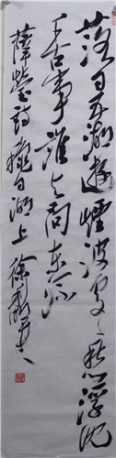 落日五湖遊煙波處々愁浮沈
千古事誰与問東流
薛瑩詩秋日湖上 徐